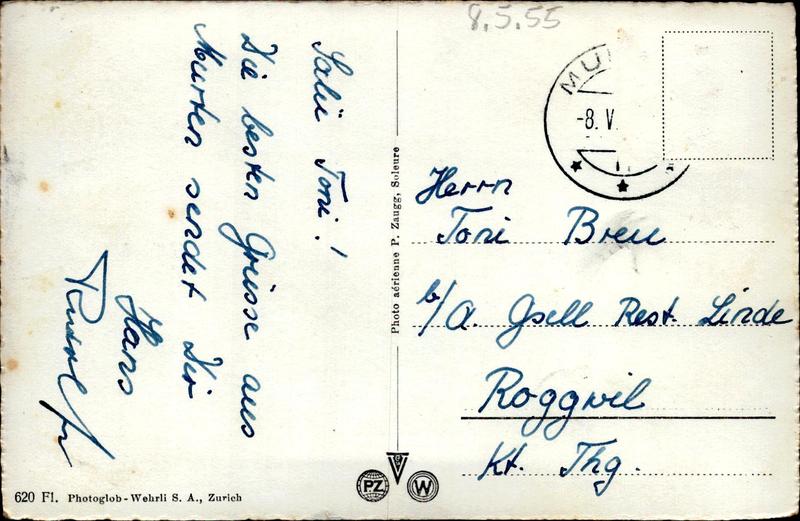 8.5.55
Salü Toni!
Die besten Grüsse aus
Murten sendet Dir
Hans
MU
-8. V.
Herrn
Toni Breu
b/A. Gsell Rest. Linde
Roggwil
Kt. Thg.
Photo aérienne P. Zaugg, Soleure
PZ
W
620 Fl. Photoglob-Wehrli S. A., Zurich